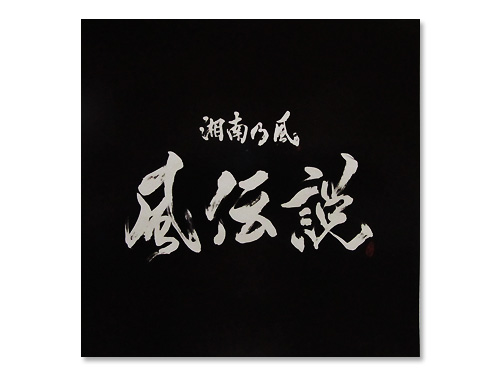 湘南乃風
風伝説